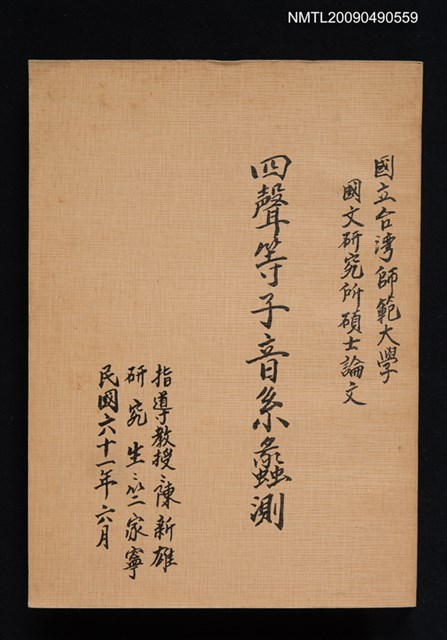 NMTL20090490559
國立台湾師範大學
國文研究所碩士論文
四聲等子音系蠡測
指導教授:陳新雄
研究生:竺家寧
民國六十一年六月